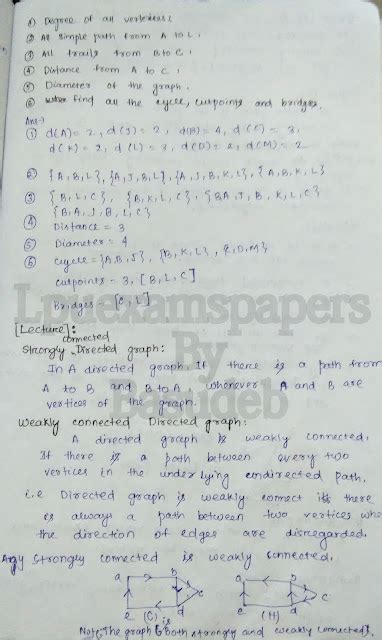 ① Degree of all vertexes?
② All simple path from A to L.
③ All trails from B to C.
④ Distance from A to C.
⑤ Diameter of the graph.
⑥ find all the cycle, cutpoints and bridges.
Ans→
① d(A) = 2, d(J) = 2, d(B) = 4, d(C) = 3,
d(K) = 2, d(L) = 3, d(D) = 2, d(M) = 2
② {A,B,L}, {A,J,B,L}, {A,J,B,K,L}, {A,B,K,L}
③ {B,L,C}, {B,K,L,C}, {BA,J,B,K,L,C}
{B,A,J,B,L,C}
④ Distance = 3
⑤ Diameter = 4
⑥ cycle = {A,B,J}, {B,K,L}, {C,D,M}
cutpoints = 3, [B,L,C]
Bridges = [C,L]
Lpuexamspapers
By
Basudeb
[Lecture]:
connected
Strongly Directed graph:
In A directed graph. If there is a path from
A to B and B to A, whenever A and B are
vertices of the graph.
Weakly connected Directed graph:
A directed graph is weakly connected.
If there is a path between every two
vertices in the underlying undirected path.
i.e Directed graph is weakly connect iff there
is always a path between two vertices whe
the direction of edges are disregarded.
Any strongly connected is weakly connected.
a b c d e (G)
a b c d e (H)
Note: The graph G is both strongly and weakly connected